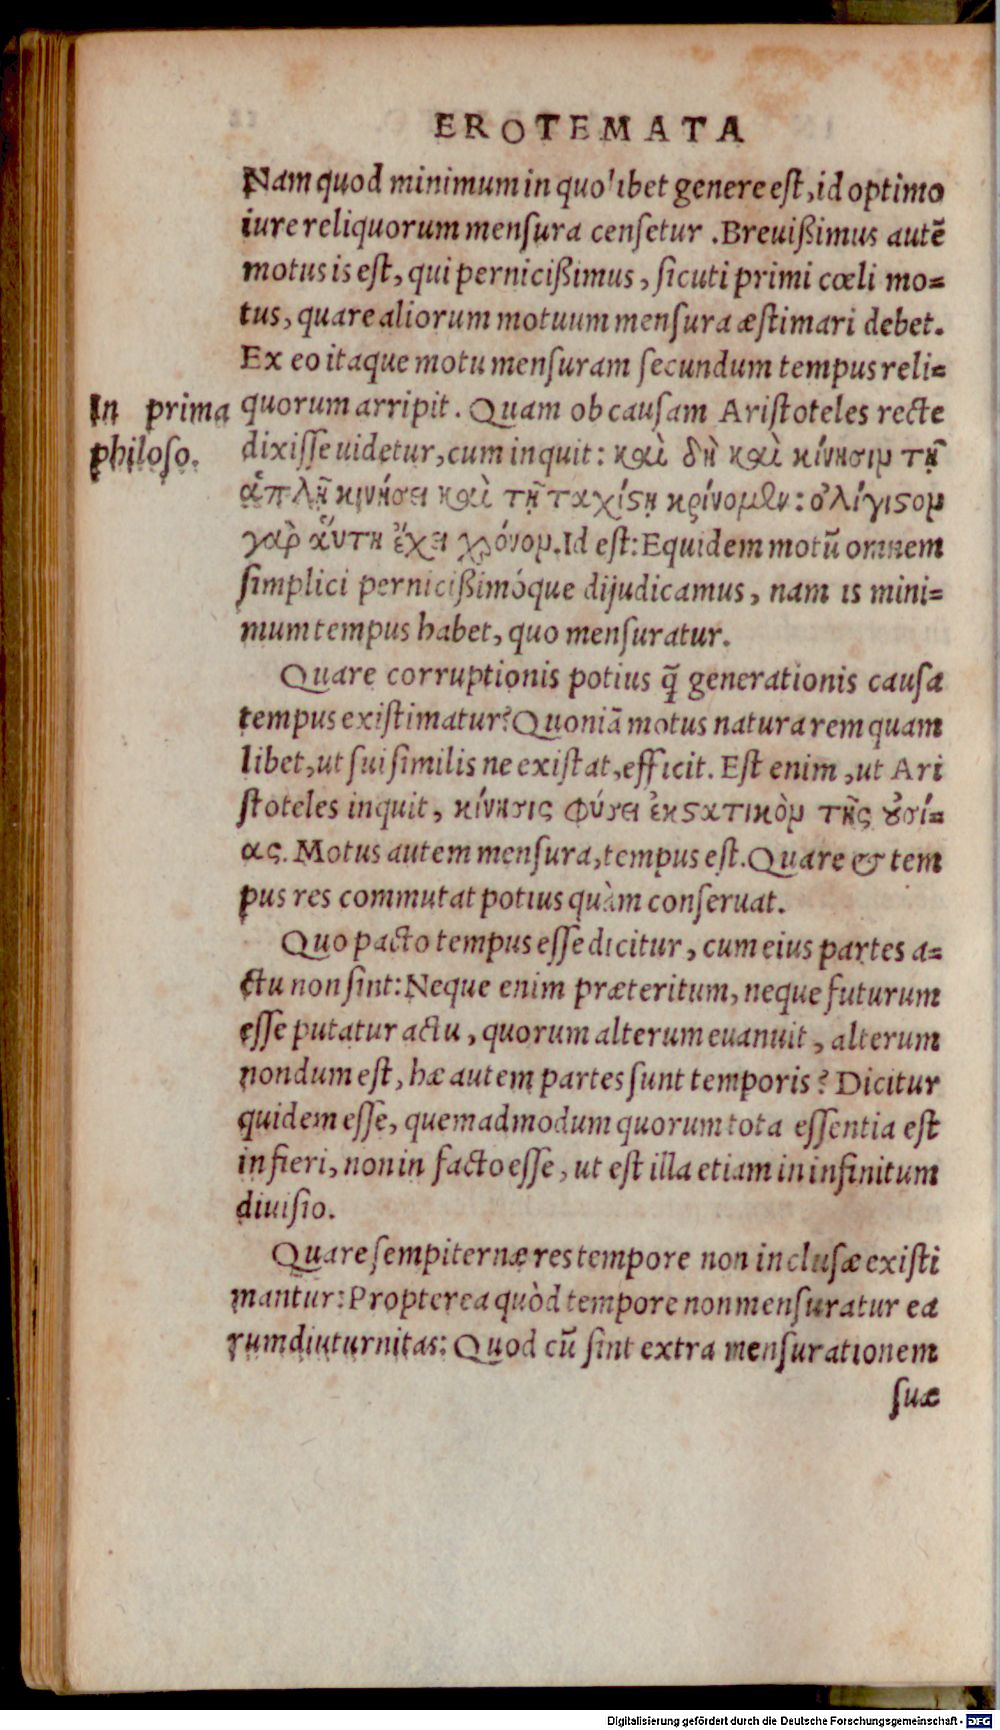 EROTEMATA
Nam quod minimum in quolibet genere est, id optimo
iure reliquorum mensura censetur. Breuißimus autẽ
motus is est, qui pernicißimus, sicuti primi cœli mo=
tus, quare aliorum motuum mensura æstimari debet.
Ex eo itaque motu mensuram secundum tempus reli=
In prima
philoso.
quorum arripit. Quam ob causam Aristoteles recte
dixisse uidetur, cum inquit: καὶ δὴ καὶ κίνησιν τῇ
ἁπλῇ κινήσει καὶ τῇ ταχίϛῃ κρίνομεν: ὀλίγιϛον
γὰρ αὕτη ἔχει χρόνον. Id est: Equidem motũ omnem
simplici pernicißimóque dijudicamus, nam is mini=
mum tempus habet, quo mensuratur.
Quare corruptionis potius q̃ generationis causa
tempus existimatur? Quoniã motus natura rem quam
libet, ut sui similis ne existat, efficit. Est enim, ut Ari
stoteles inquit, κίνησις φύσει ἐκϛατικὸν τῆς ȣ̓σί=
ας. Motus autem mensura, tempus est. Quare & tem
pus res commutat potius quàm conseruat.
Quo pacto tempus esse dicitur, cum eius partes a=
ctu non sint: Neque enim præteritum, neque futurum
esse putatur actu, quorum alterum euanuit, alterum
nondum est, hæ autem partes sunt temporis? Dicitur
quidem esse, quemadmodum quorum tota essentia est
in fieri, non in facto esse, ut est illa etiam in infinitum
diuisio.
Quare sempiternæ res tempore non inclusæ existi
mantur: Propterea quòd tempore non mensuratur ea
rum diuturnitas: Quod cũ sint extra mensurationem
suæ
Digitalisierung gefördert durch die Deutsche Forschungsgemeinschaft - DFG